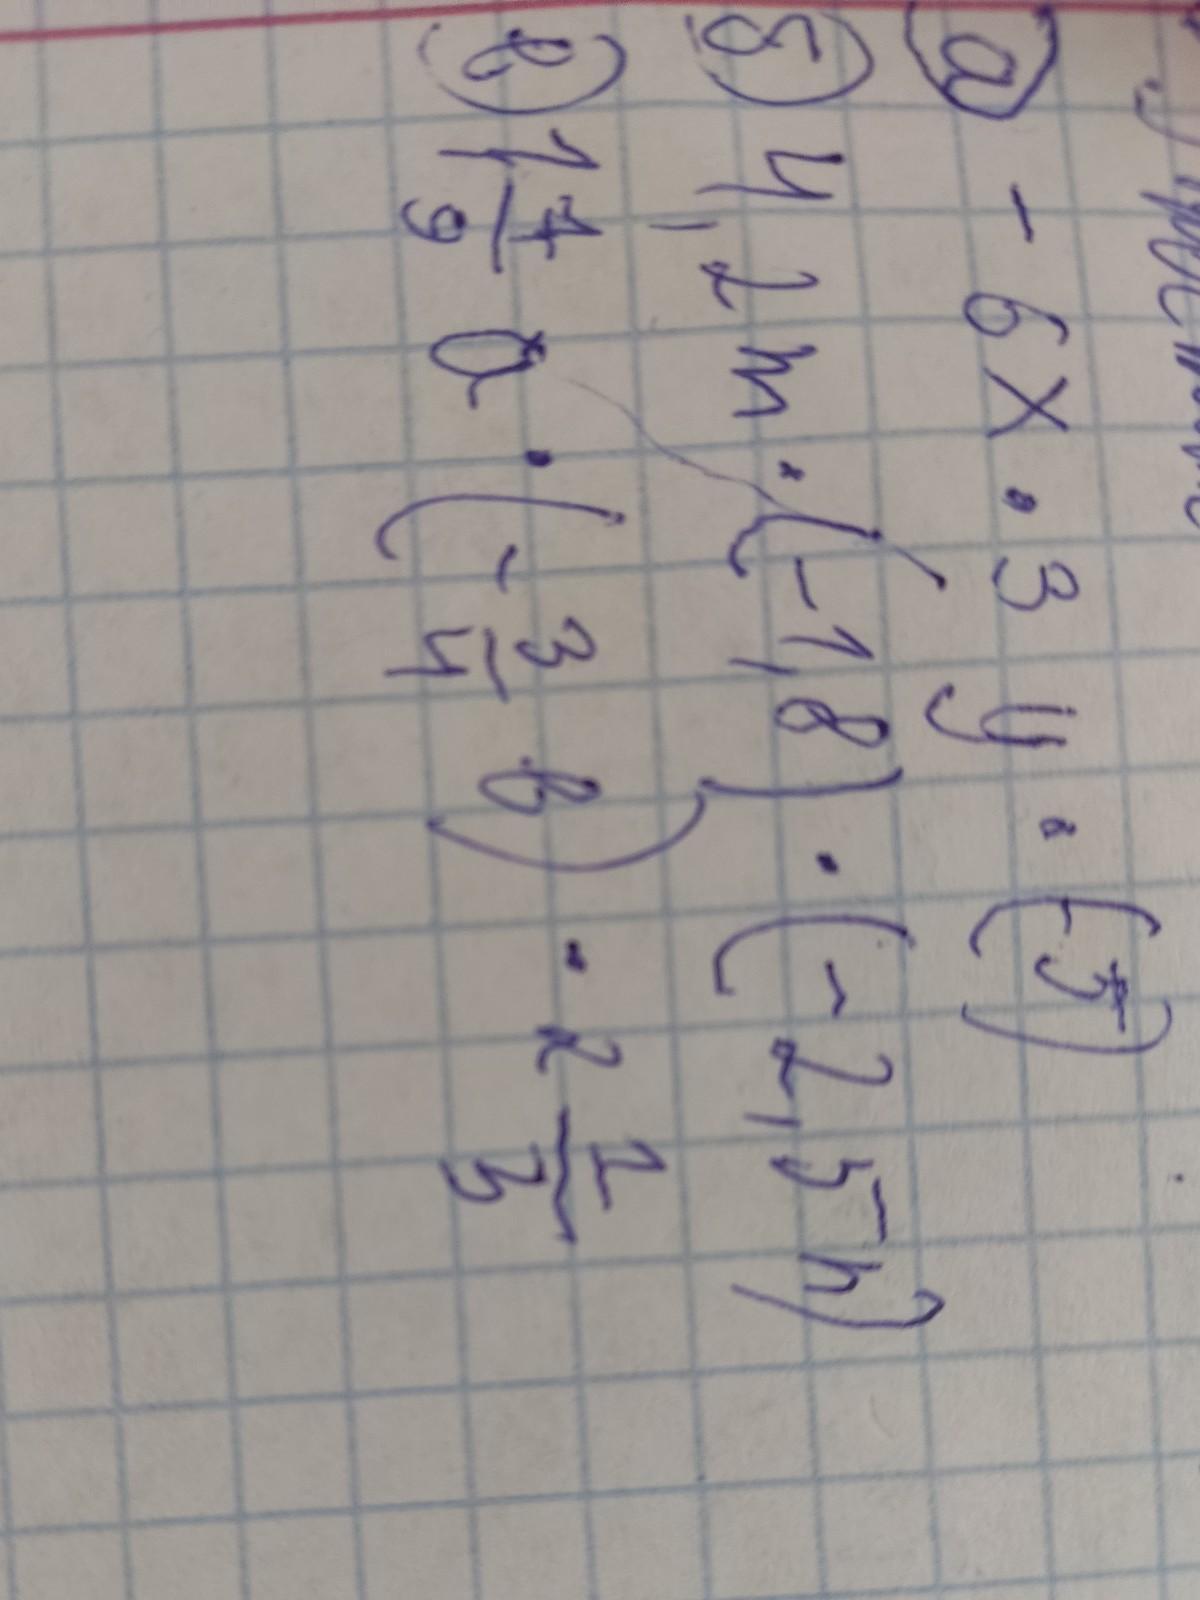 а) -6x · 3y · (-7)
б) 4,2m · (-1,8) · (-2,5n)
в) 1 7/9 a · (-3/4 b) · 2 1/3